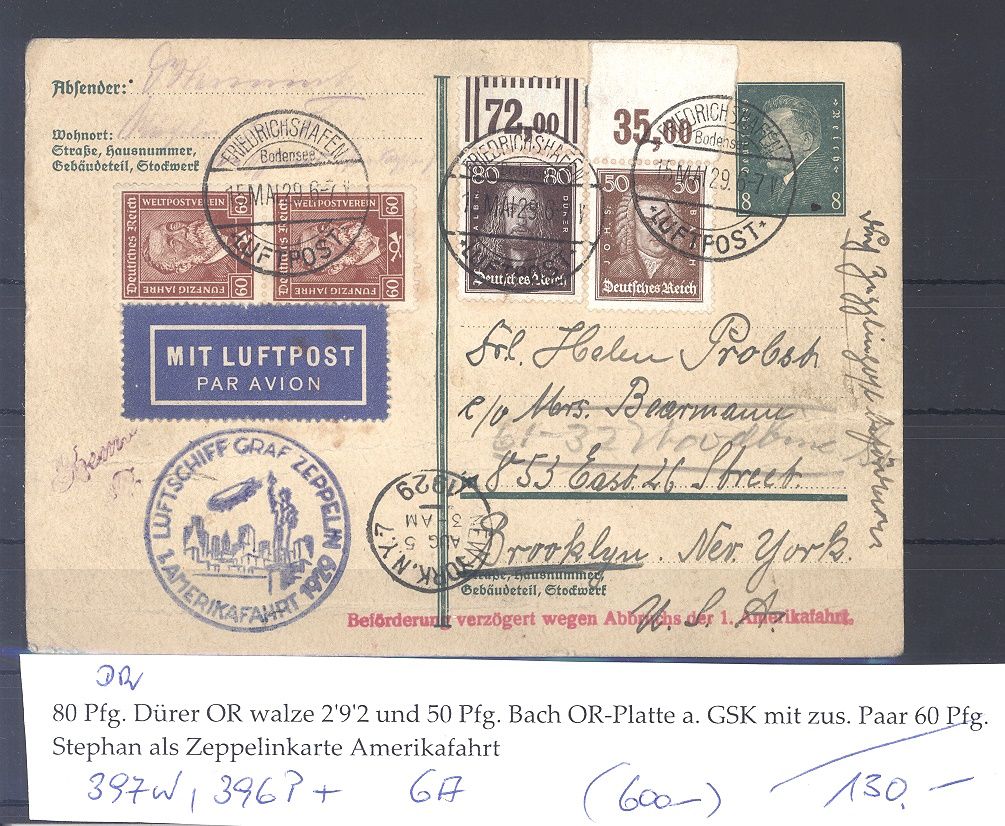 Absender:
Wohnort:
Straße, Hausnummer,
Gebäudeteil, Stockwerk
FRIEDRICHSHAFEN
Bodensee
15 MAI 29. 6-7 V
LUFTPOST
72,00
35,00
FRIEDRICHSHAFEN
15 MAI 29. 6-7 V
LUFTPOST
FRIEDRICHSHAFEN
Bodensee
15 MAI 29. 6-7 V
LUFTPOST
Deutsches Reich
8 8
WELTPOSTVEREIN
60 60
Deutsches Reich
FÜNFZIG JAHRE
WELTPOSTVEREIN
60
Deutsches Reich
FÜNFZIG JAHRE
80 80
DÜRER
Deutsches Reich
50 50
JOH. S. BACH
Deutsches Reich
MIT LUFTPOST
PAR AVION
Frl. Helen Probst
c/o Mrs. Beermann
853 East 26 Street.
Brooklyn. New York.
U. S. A.
LUFTSCHIFF GRAF ZEPPELIN
1. AMERIKAFAHRT 1929
NEW YORK, N.Y. 7
AUG 5
3 AM
1929
Straße, Hausnummer,
Gebäudeteil, Stockwerk
Beförderung verzögert wegen Abbruchs der 1. Amerikafahrt.
DR
80 Pfg. Dürer OR walze 2'9'2 und 50 Pfg. Bach OR-Platte a. GSK mit zus. Paar 60 Pfg.
Stephan als Zeppelinkarte Amerikafahrt
397W, 396P + GA (600-) 130.-